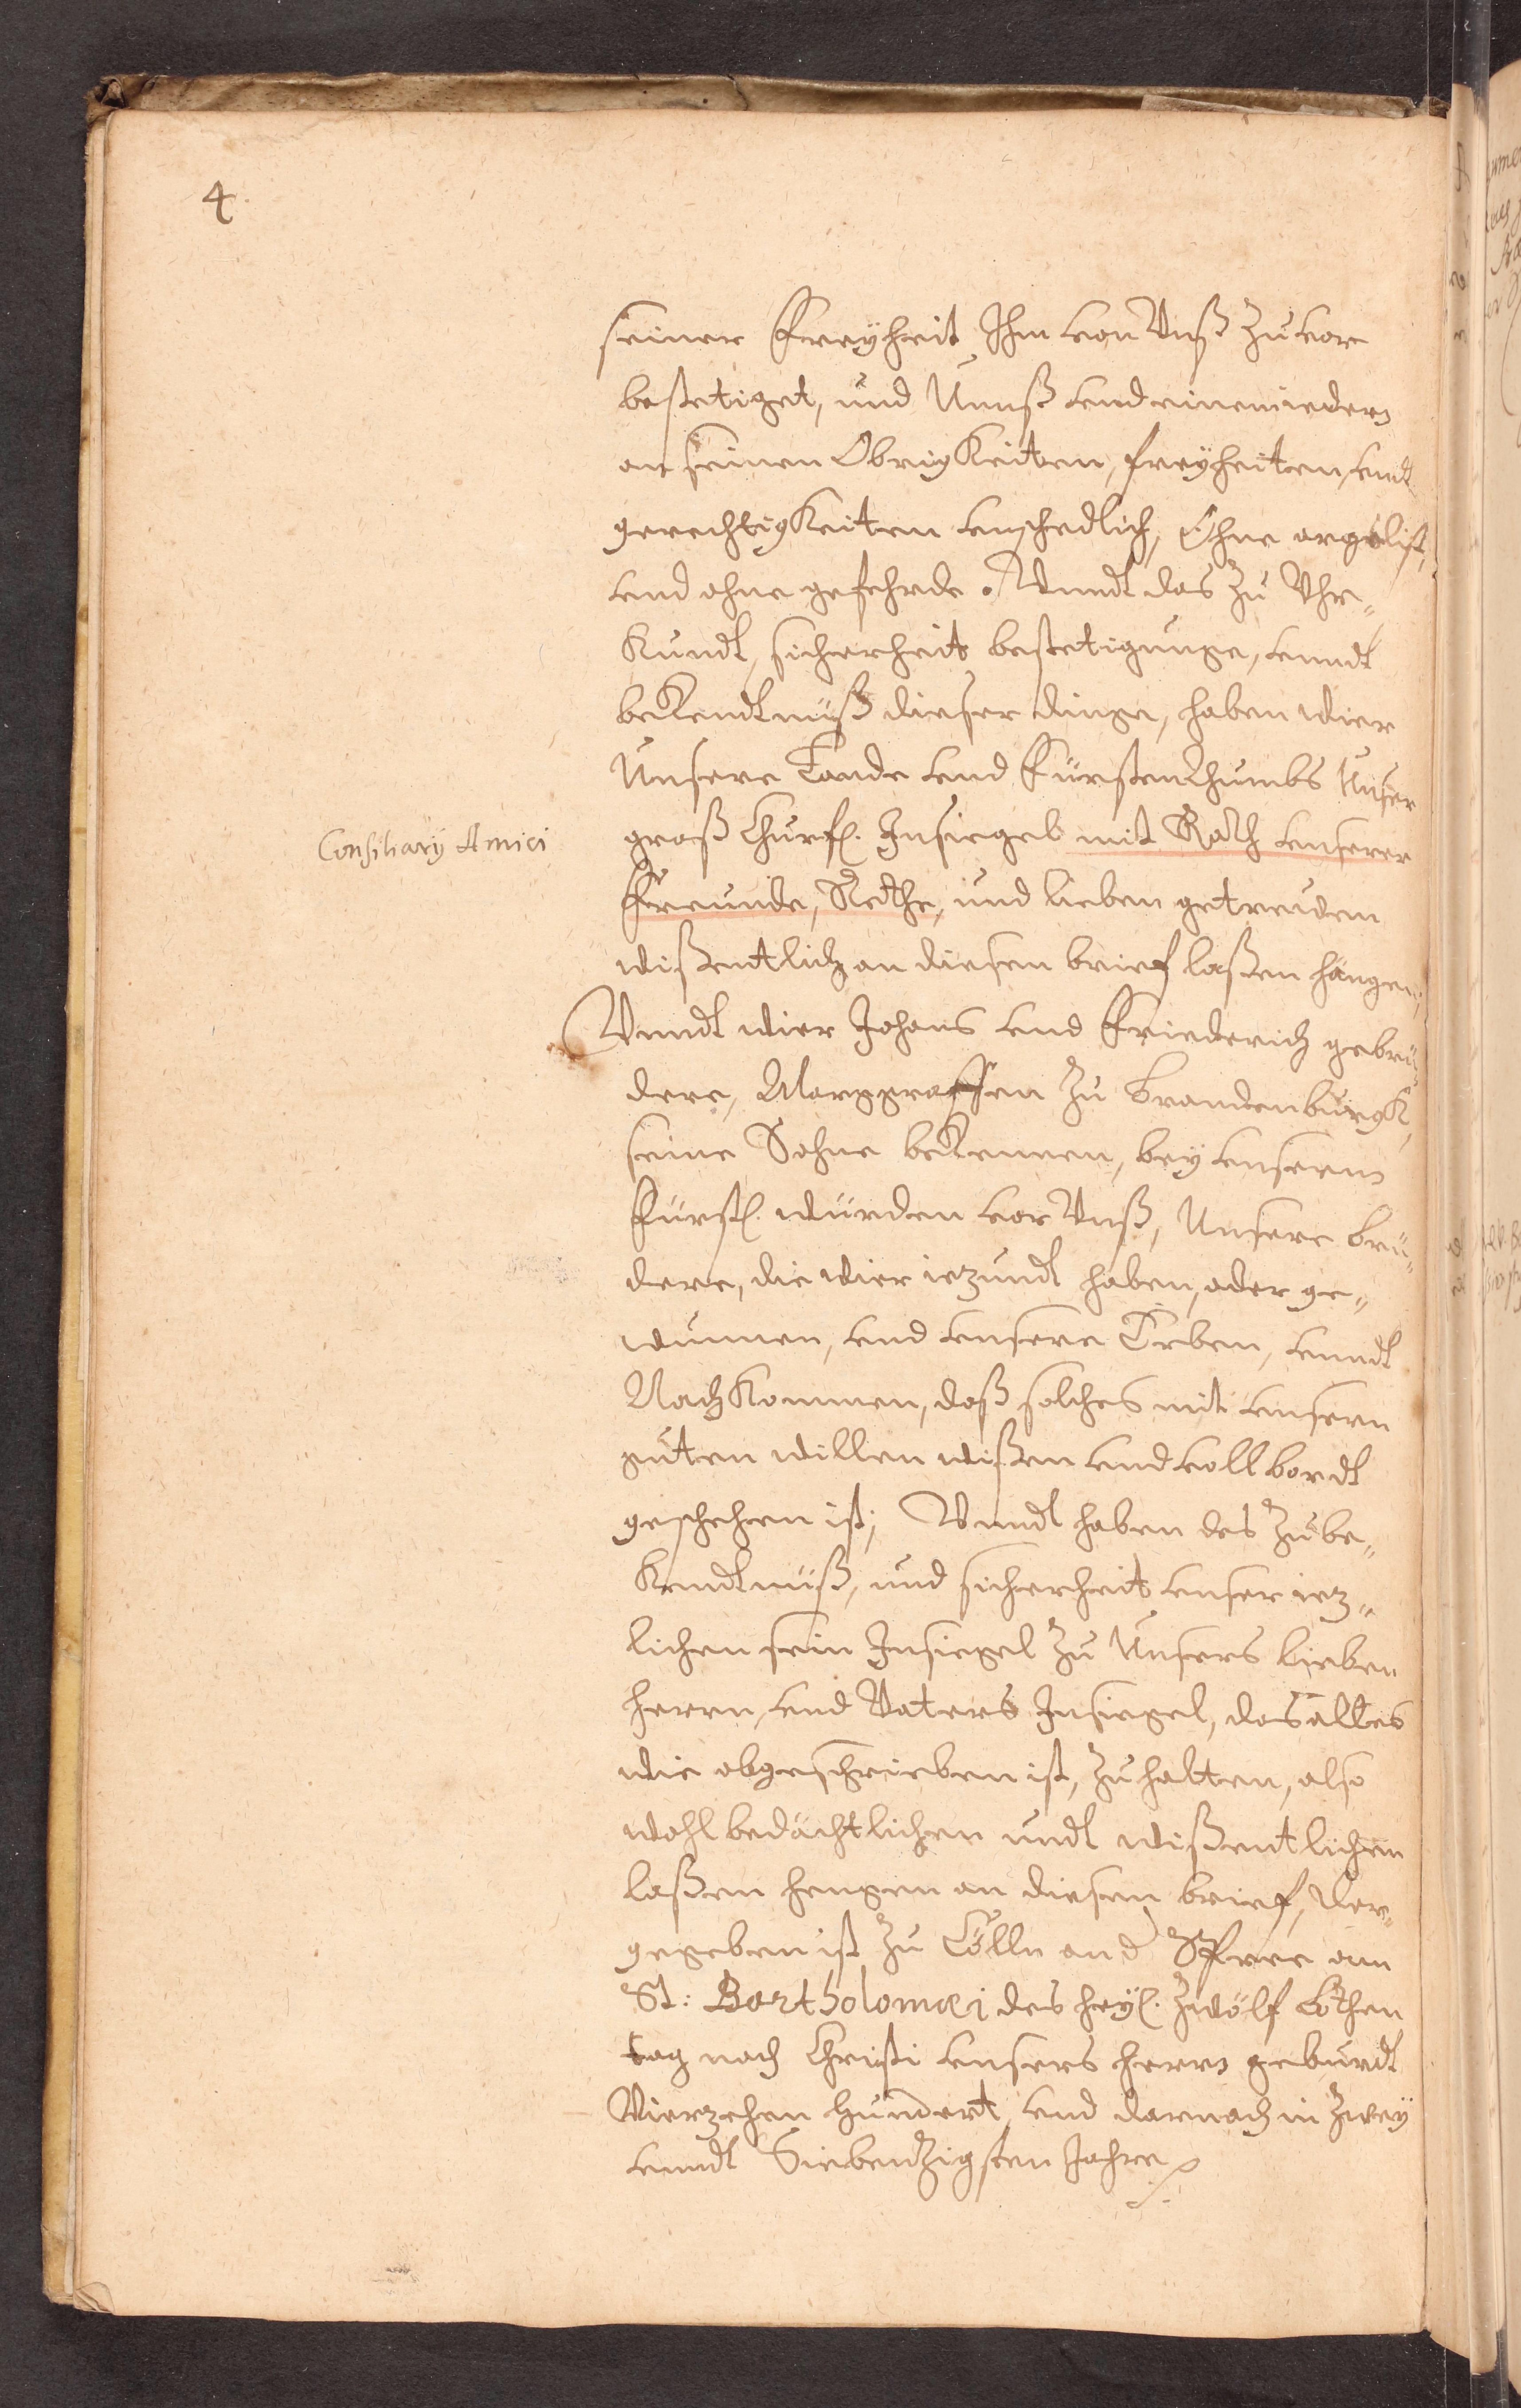 4.
seiner Freyheit Ihm von Vnß zuvor
bestetiget, und Unnß vnd einem iedern
an seinen Obrigkeiten, freyheiten, vndt
gerechtigkeiten vnschedlich, Ohne argelist,
vnd ohne gefehrde. Vnndt das zu Vhr„
kundt, sicherheit bestetigunge, vnndt
bekendtnüß dieser dinge, haben wier
Unsere Lande vnd Fürstenthumbs Unser
groß Churf. Insiegel mit Rath vnserer
Consiliarÿ Amici
Freunde, Rethe, und lieben getreuden
wißentlich an diesen brief laßen hängen,
Vnndt wier Johans vnd Friederich gebrü„
dere, Marggraffen zu brandenburgk,
seine Sohne bekennen, bey vnserm
Fürstl. würden vor Vnß, Unsere brü„
dere, die wier iezundt haben, oder ge„
wunnen, vnd vnsere Erben, vnndt
Nachkommen, daß solches mit vnsern
guten willen wißen vnd vollbordt
geschehen ist; Vnndt haben des zu be„
kendtnüß, und sicherheit vnser iez„
lichen sein Insiegel zu Unsers lieben
herrn, vnd Vaters Insiegel, das alles
wie obgeschrieben ist, zu halten, also
wohlbedächtlichen undt wißentlichen
laßen hengen an diesen brief, der„
gegeben ist zu Cölln an d Spree am
St: Bartholomæi des heyl. Zwölf bothen
tag nach Christi vnsers herrn geburdt
Vierzehen hundert, vnd darnach in zwey
vnndt Siebendzigsten Jahre